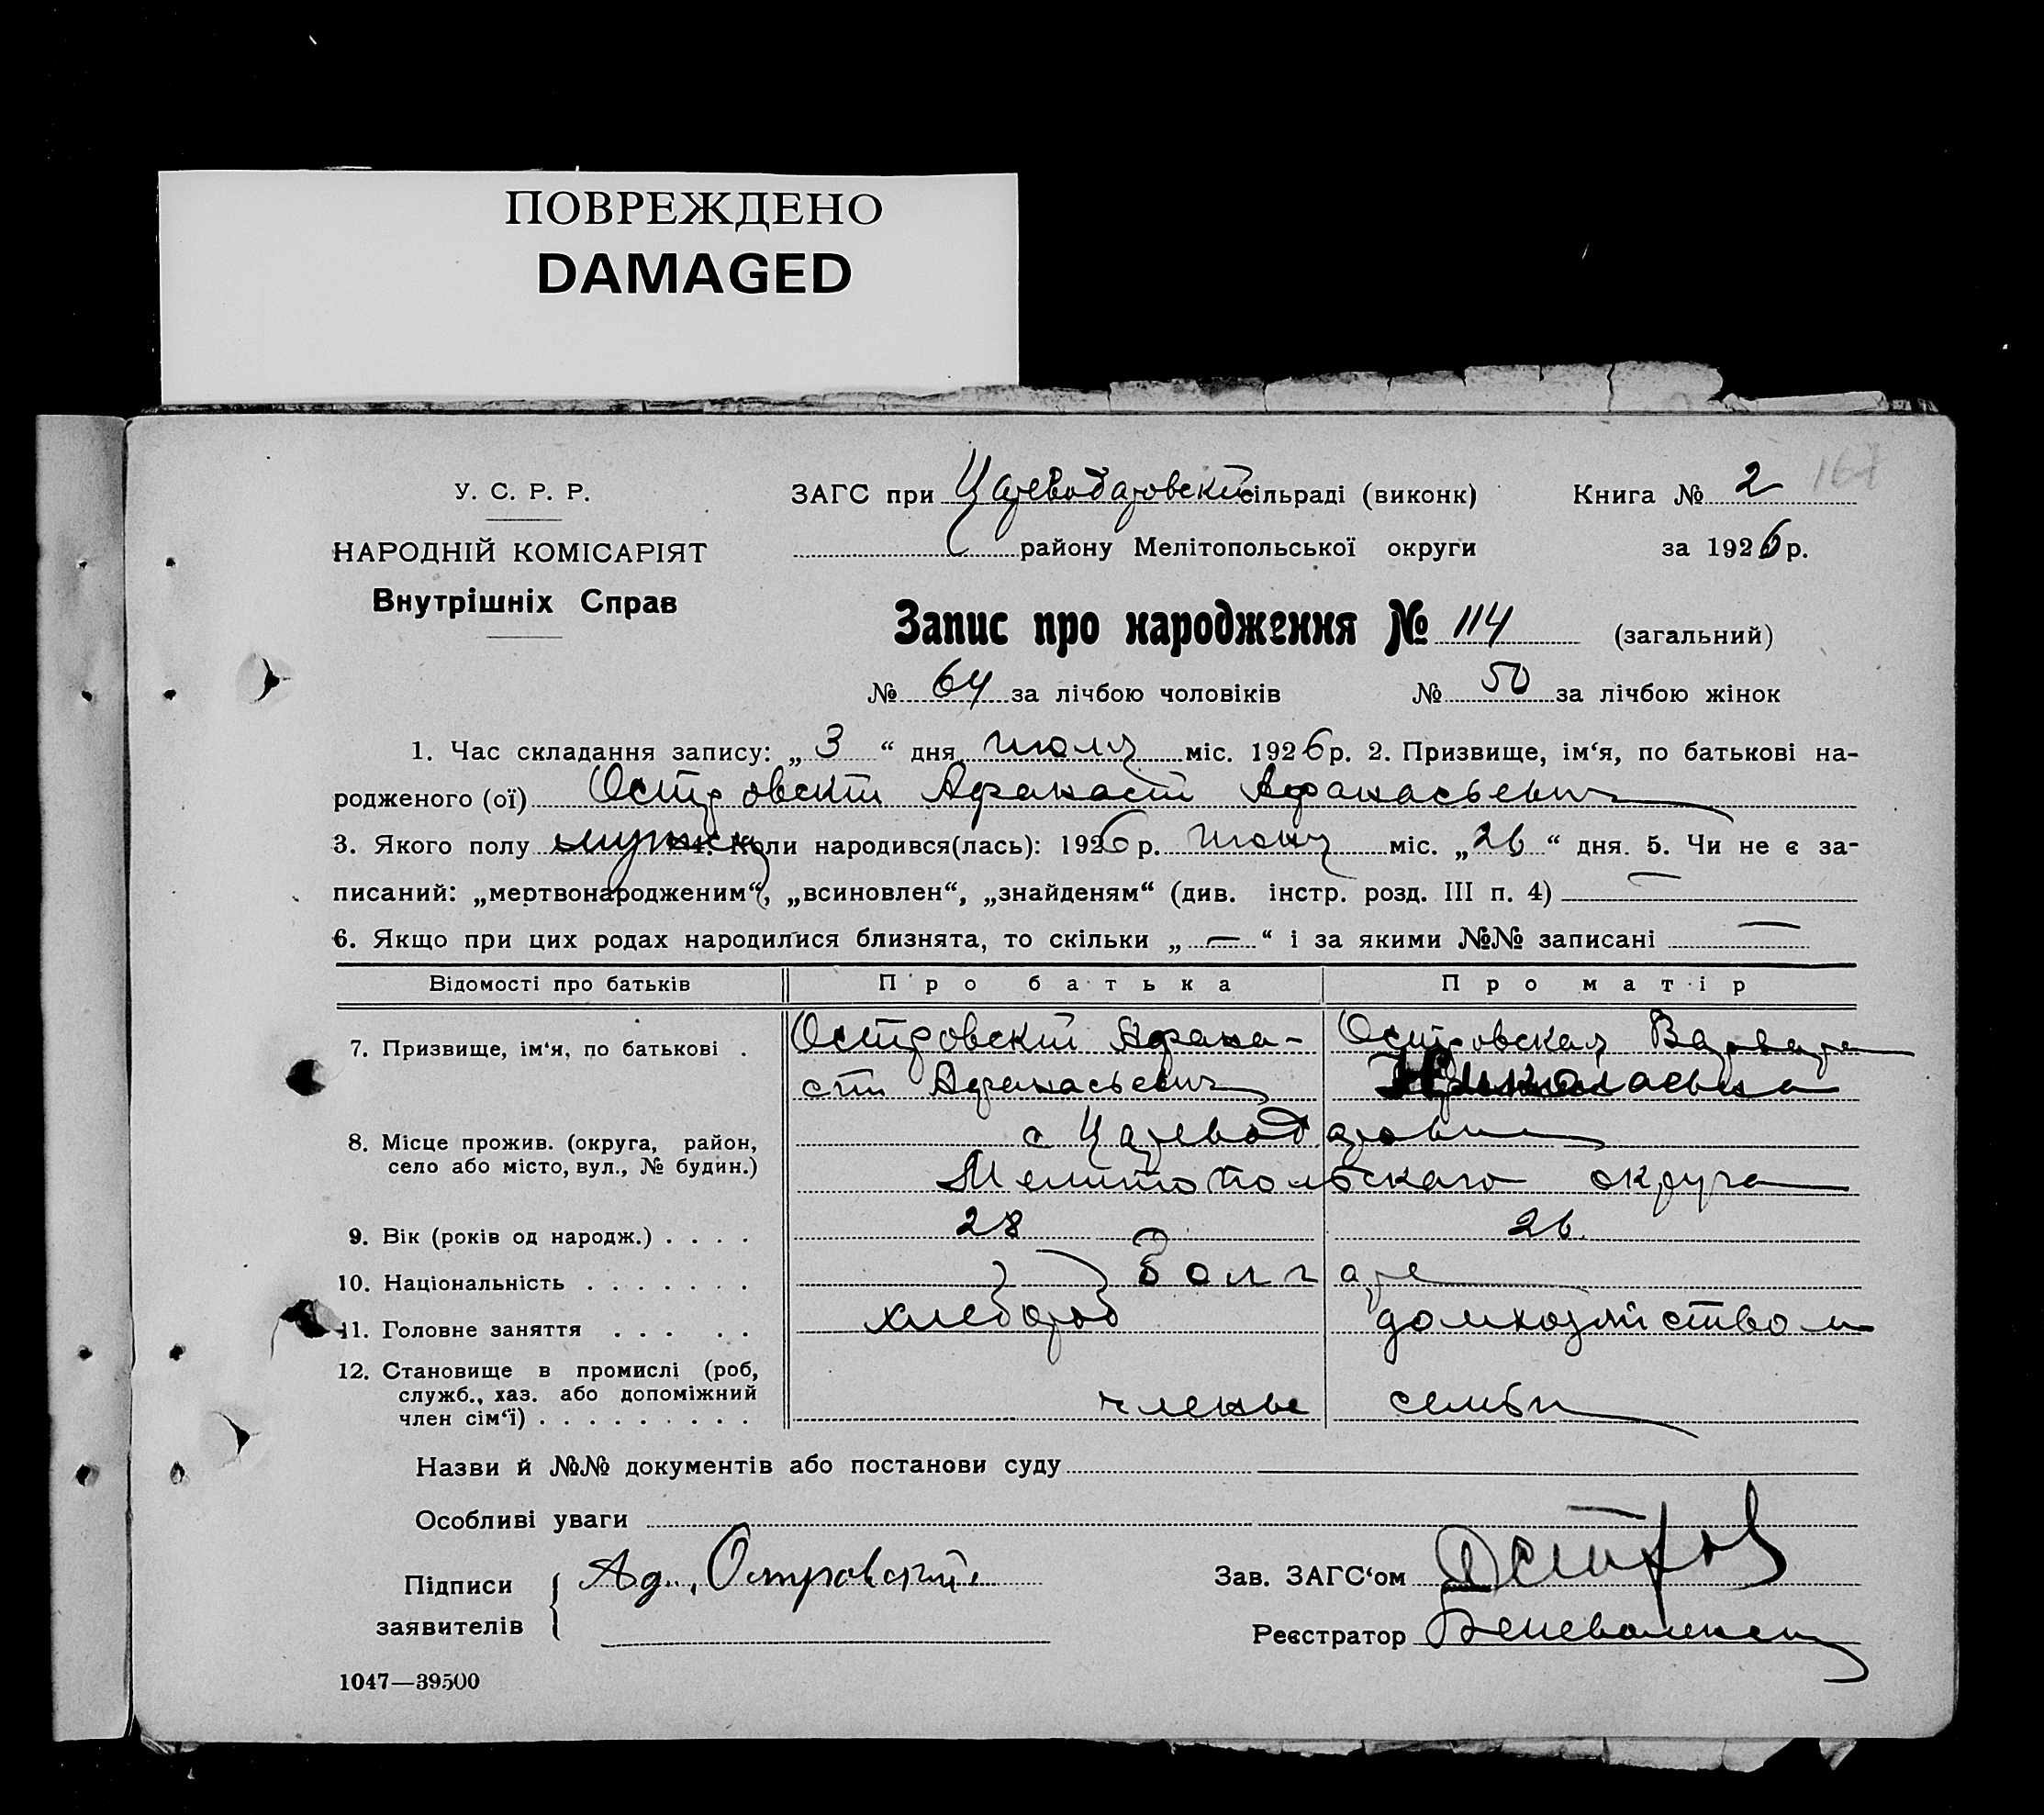 ПОВРЕЖДЕНО
DAMAGED
У. С. Р. Р.
НАРОДНІЙ КОМІСАРІЯТ
Внутрішніх Справ
ЗАГС при Царевод­аровской сільраді (виконк)
Книга № 2 167
району Мелітопольської округи
за 1926 р.
Запис про народження № 114 (загальний)
№ 64 за лічбою чоловіків № 50 за лічбою жінок
1. Час складання запису: „3“ дня июля міс. 1926 р. 2. Призвище, ім‘я, по батькові на-
родженого (ої) Островский Афанасий Афанасьевич
3. Якого полу мужск 4. Коли народився(лась): 1926 р. июня міс. „26“ дня. 5. Чи не є за-
писаний: „мертвонародженим“, „всиновлен“, „знайденям“ (див. інстр. розд. III п. 4) —
6. Якщо при цих родах народилися близнята, то скільки „—“ і за якими №№ записані —
Відомості про батьків Про батька Про матір
7. Призвище, ім‘я, по батькові . Островский Афана- Островская Варвара
сий Афанасьевич Николаевна
8. Місце прожив. (округа, район, с Царевод­аровки
село або місто, вул., № будин.) Мелитопольскаго округа
9. Вік (років од народж.) . . . . 28 26
10. Національність . . . . . . . Болгаре
11. Головне заняття . . . . . хлебороб домхозяйством
12. Становище в промислі (роб,
служб., хаз. або допоміжний
член сім‘ї) . . . . . . . . . члены семьи
Назви й №№ документів або постанови суду
Особливі уваги
Підписи
заявителів
Островский
Зав. ЗАГС‘ом
Реєстратор
1047—39500